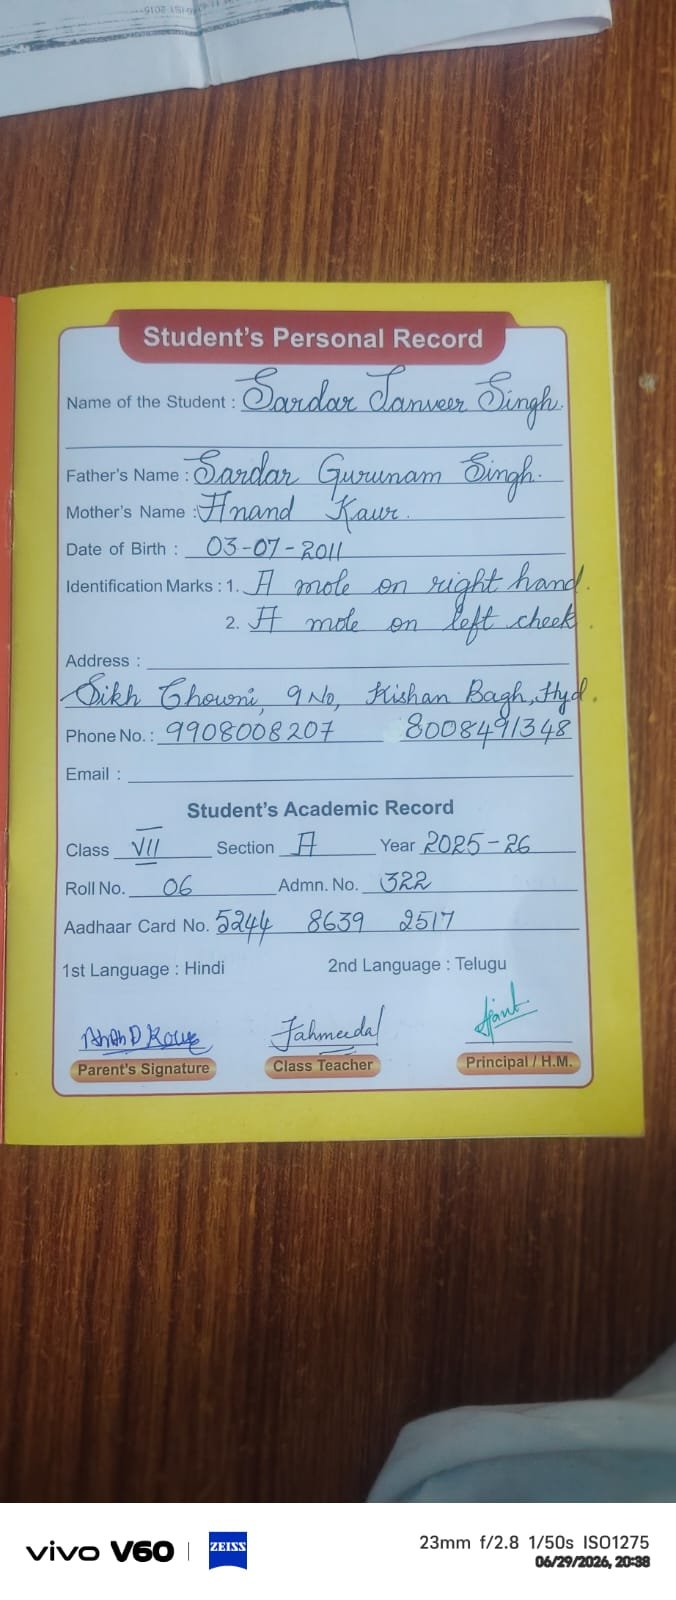 Student's Personal Record
Name of the Student : Sardar Tanveer Singh.
Father's Name : Sardar Gurunam Singh.
Mother's Name : Anand Kaur.
Date of Birth : 03-07-2011
Identification Marks : 1. A mole on right hand.
2. A mole on left cheek.
Address :
Sikh Chowni, 9 No, Kishan Bagh, Hyd.
Phone No. : 9908008207 8008491348
Email :
Student's Academic Record
Class VII Section A Year 2025-26
Roll No. 06 Admn. No. 322
Aadhaar Card No. 5244 8639 2517
1st Language : Hindi 2nd Language : Telugu
Parent's Signature Class Teacher Principal / H.M.
vivo V60 | ZEISS
23mm f/2.8 1/50s ISO1275
06/29/2026, 20:38